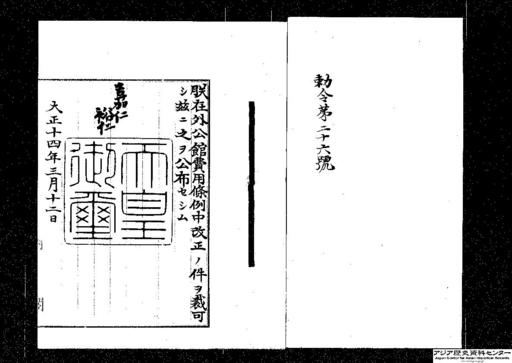 勅令第二十六號
朕在外公館費用條例中改正ノ件ヲ裁可
シ茲ニ之ヲ公布セシム
嘉仁
裕仁
天皇
御璽
大正十四年三月十二日
内
閣
アジア歴史資料センター
Japan Center for Asian Historical Records